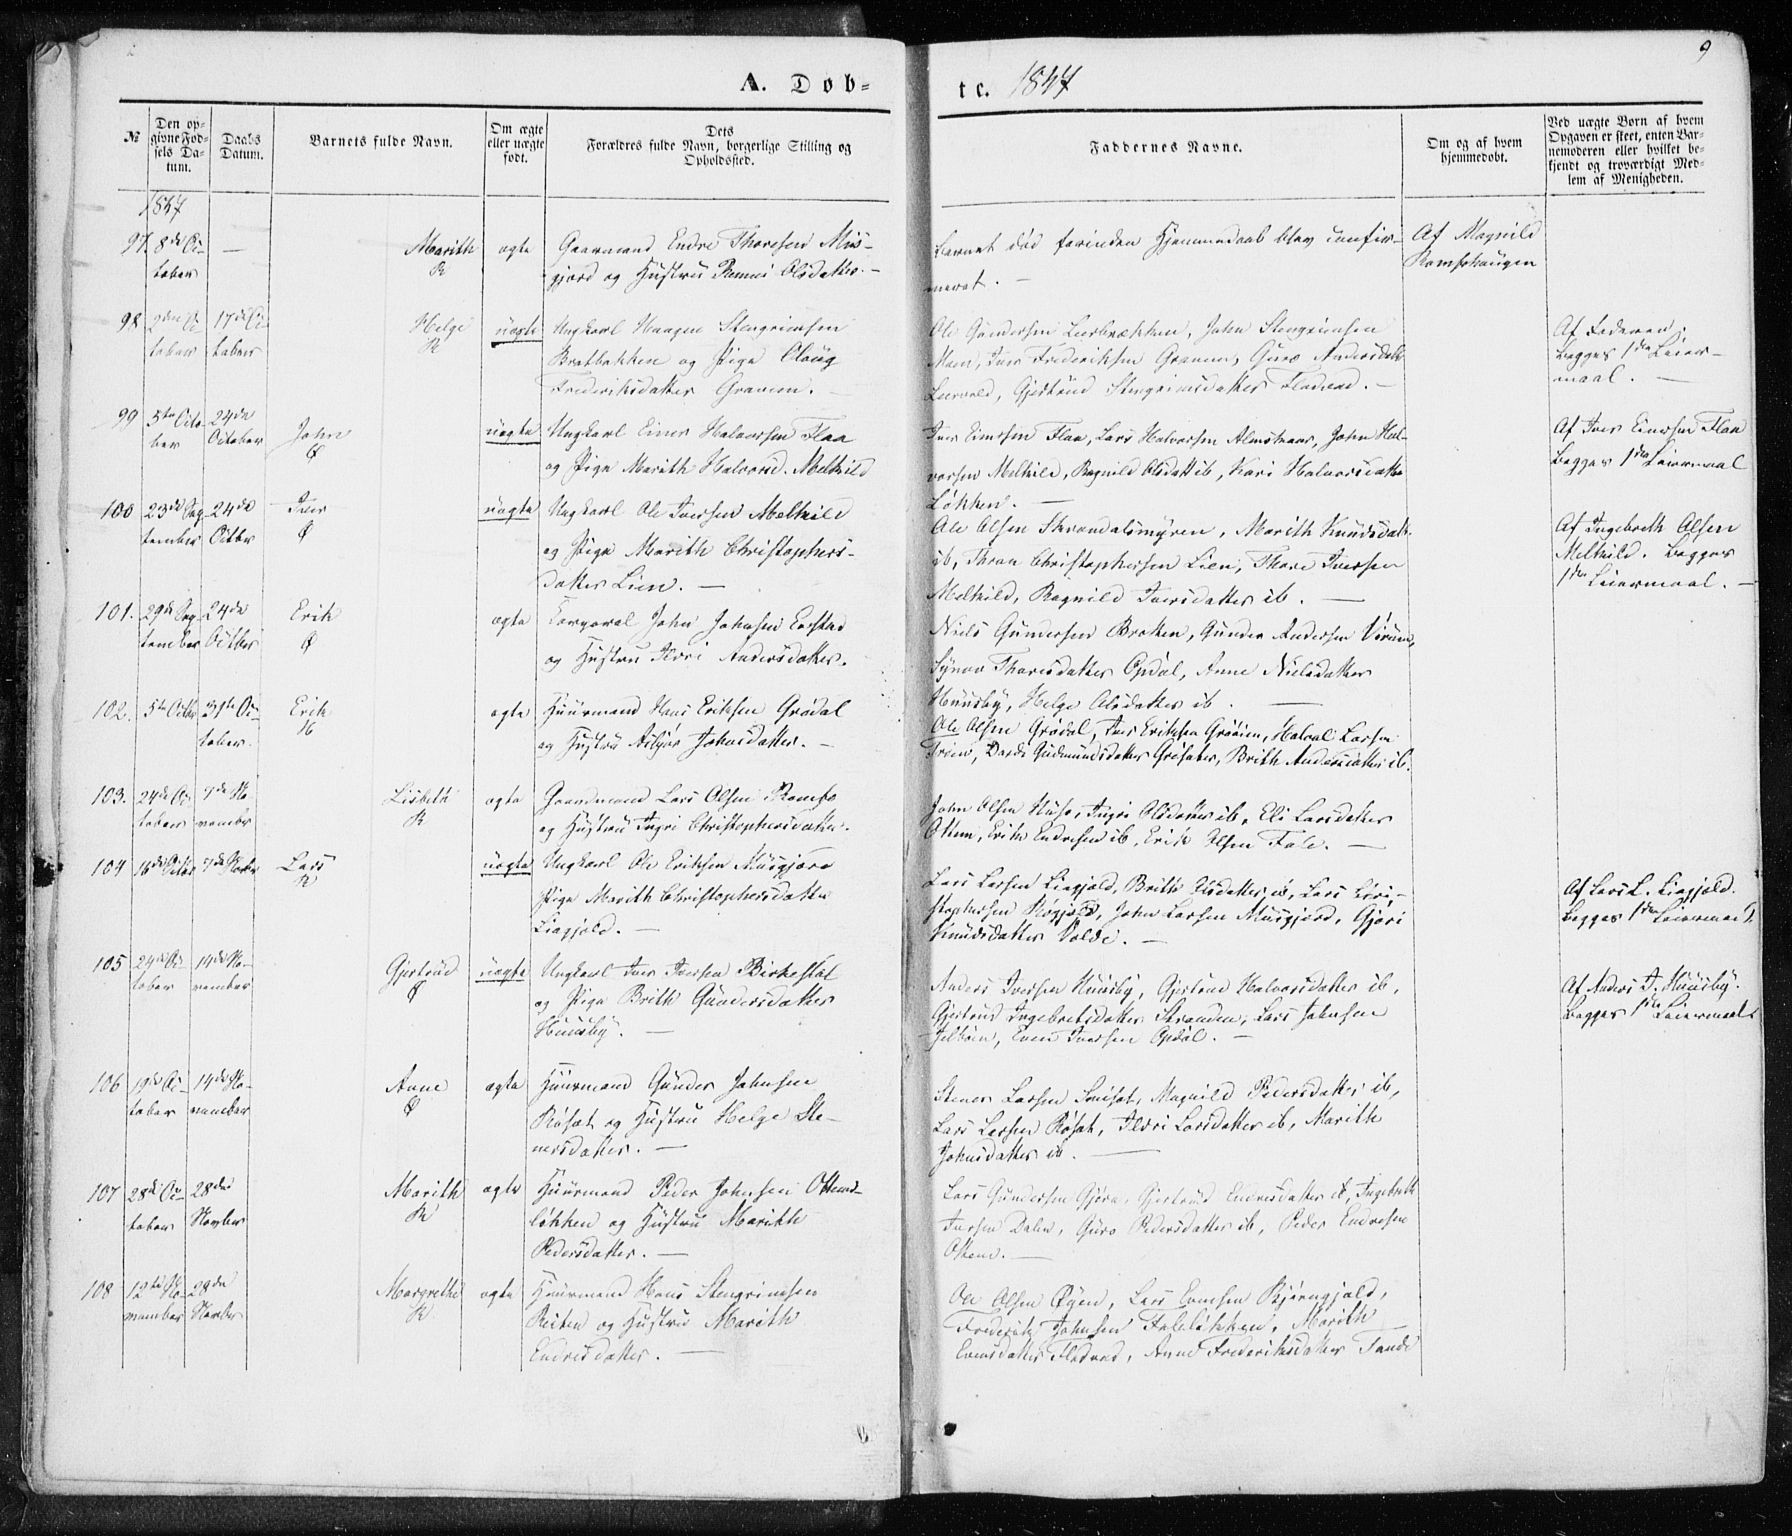 A. Døb-
te. 1847
9
№
Den op-
givne Fød-
sels Da-
tum.
Daabs
Datum.
Barnets fulde Navn.
Om ægte
eller uægte
født.
Dets
Forældres fulde Navn, borgerlige Stilling og
Opholdssted.
Faddernes Navne.
Om og af hvem
hjemmedøbt.
Ved uægte Børn af hvem
Opgaven er skeet, enten Bar-
nemoderen eller hvilket be-
kjendt og troværdigt Med-
lem af Menigheden.
1847
97. 8de Oc-
tober
—
Marith
R
ægte
Gaarmand Endre Thoresen Mus-
gjerd og Hustru Olsdatter. —
Barnet død forinden Hjemmedaab blev confir-
meret. —
Af Magnild
Romfohaugen
98 2den Oc-
tober
17de Oc-
tober
Helge
R
uægte
Ungkarl Haagen Stengrimsen
Bratbakken og Pige Olaug
Frederiksdatter Gravem. —
Ole Gundersen John Stengrimsen
Moen, Iver Frederiksen Gravem, Guro Andersdatt
Gjertrud Stengrimsdatter Fladvad. —
Af Faderen.
Begges 1ste Leier-
maal. —
99 5te Octo-
ber
24de
October
John
Ø
uægte
Ungkarl Einer Halvorsen Flaa
og Pige Marith Halvorsd. Melkild
Iver Einersen Flaa, Lars Halvorsen John Hal-
vorsen Melkild, Ragnild Olsdatt ib, Kari Halvorsdatter
Løkken. —
Af Iver Einersen Flaa
Begges 1ste Leiermaal
100 23de Sep-
tember
24de
Octbr
Iver
Ø
uægte
Ungkarl Ole Iversen Melkild
og Pige Marith Christophers-
datter Lien. —
Ole Olsen Throndalsmyren, Marith Knudsdatt.
ib, Christophersen Lien, Thore Iversen
Melkild, Ragnild Iversdatter ib. —
Af Ingebreth Olsen
Melkild. Begges
1ste Leiermaal. —
101. 29de Sep-
tember
24de
Octber
Erik
Ø
ægte
Corporal John Johnsen
og Hustru Ildri Andersdatter.
Niels Gundersen Broken, Gunder Andersen
Synør Thoresdatter Opdøl, Anne Nielsdatter
Huusby, Helge Olsdatter ib. —
102. 5te Octbr
31te Oc-
tober
Erik
H
ægte
Huusmand Hans Eriksen Grødal
og Hustru Johnsdatter. —
Ole Olsen Grødal, Iver Eriksen Halvor Larsen
Gudmundsdatter Brith Andersdatter ib.
103. 24de Oc-
tober
7de No-
vember
Lisbeth
R
ægte
Gaardmand Lars Olsen Romfo
og Hustru Ingri Christophersdatter.
John Olsen Ingri Olsdatter ib, Eli Larsdatter
Ottem, Erik Endresen ib, Erik Olsen Fale. —
104 16de Octbr
7de Novbr
Lars
R
uægte
Ungkarl Ole Eriksen Musgjerd
Pige Marith Christophersdatter
Liagjeld. —
Lars Larsen Liagjeld, Brith Olsdatter ib, Lars Chri-
stophersen John Larsen Musgjerd, Gjøri
Knudsdatter Volde. —
Af Lars L. Liagjeld.
Begges 1ste Leiermaal
105 24de Oc-
tober
14de No-
vember
Gjertrud
Ø
uægte
Ungkarl Iver Iversen
og Pige Brith Gundersdatter
Huusby. —
Anders Iversen Huusby, Gjertrud Halvorsdatter ib,
Gjertrud Ingebretsdatter Stranden, Lars Johnsen
Even Iversen Opdøl. —
Af Anders I. Huusby.
Begges 1ste Leiermaal
106 19de Oc-
tober
14de No-
vember
Anne
Ø
ægte
Huusmand Gunder Johnsen
Røsæt og Hustru Helge Ste-
nersdatter. —
Stener Larsen Magnild Pedersdatter ib,
Lars Larsen Røsæt, Ildri Larsdatter ib, Marith
Johnsdatter ib. —
107 28de Oc-
tober
28de
Novber
Marith
R
ægte
Huusmand Peder Johnsen Ottems-
løkken og Hustru Marith
Pedersdatter. —
Lars Gundersen Gjøra, Gjertrud Einersdatter ib, Ingebreth
Iversen Dalen, Guro Pedersdatter ib, Peder Endresen
Ottem. —
108 12te No-
vember
28de
Novber
Margrethe
R
ægte
Huusmand Hans Stengrimsen
Reiten og Hustru Marith
Endresdatter. —
Ole Olsen Øyen, Lars Evensen Bjørngjeld,
Frederik Johnsen Faleløkken, Marith
Evensdatter Fladvad, Anne Frederiksdatter Fande